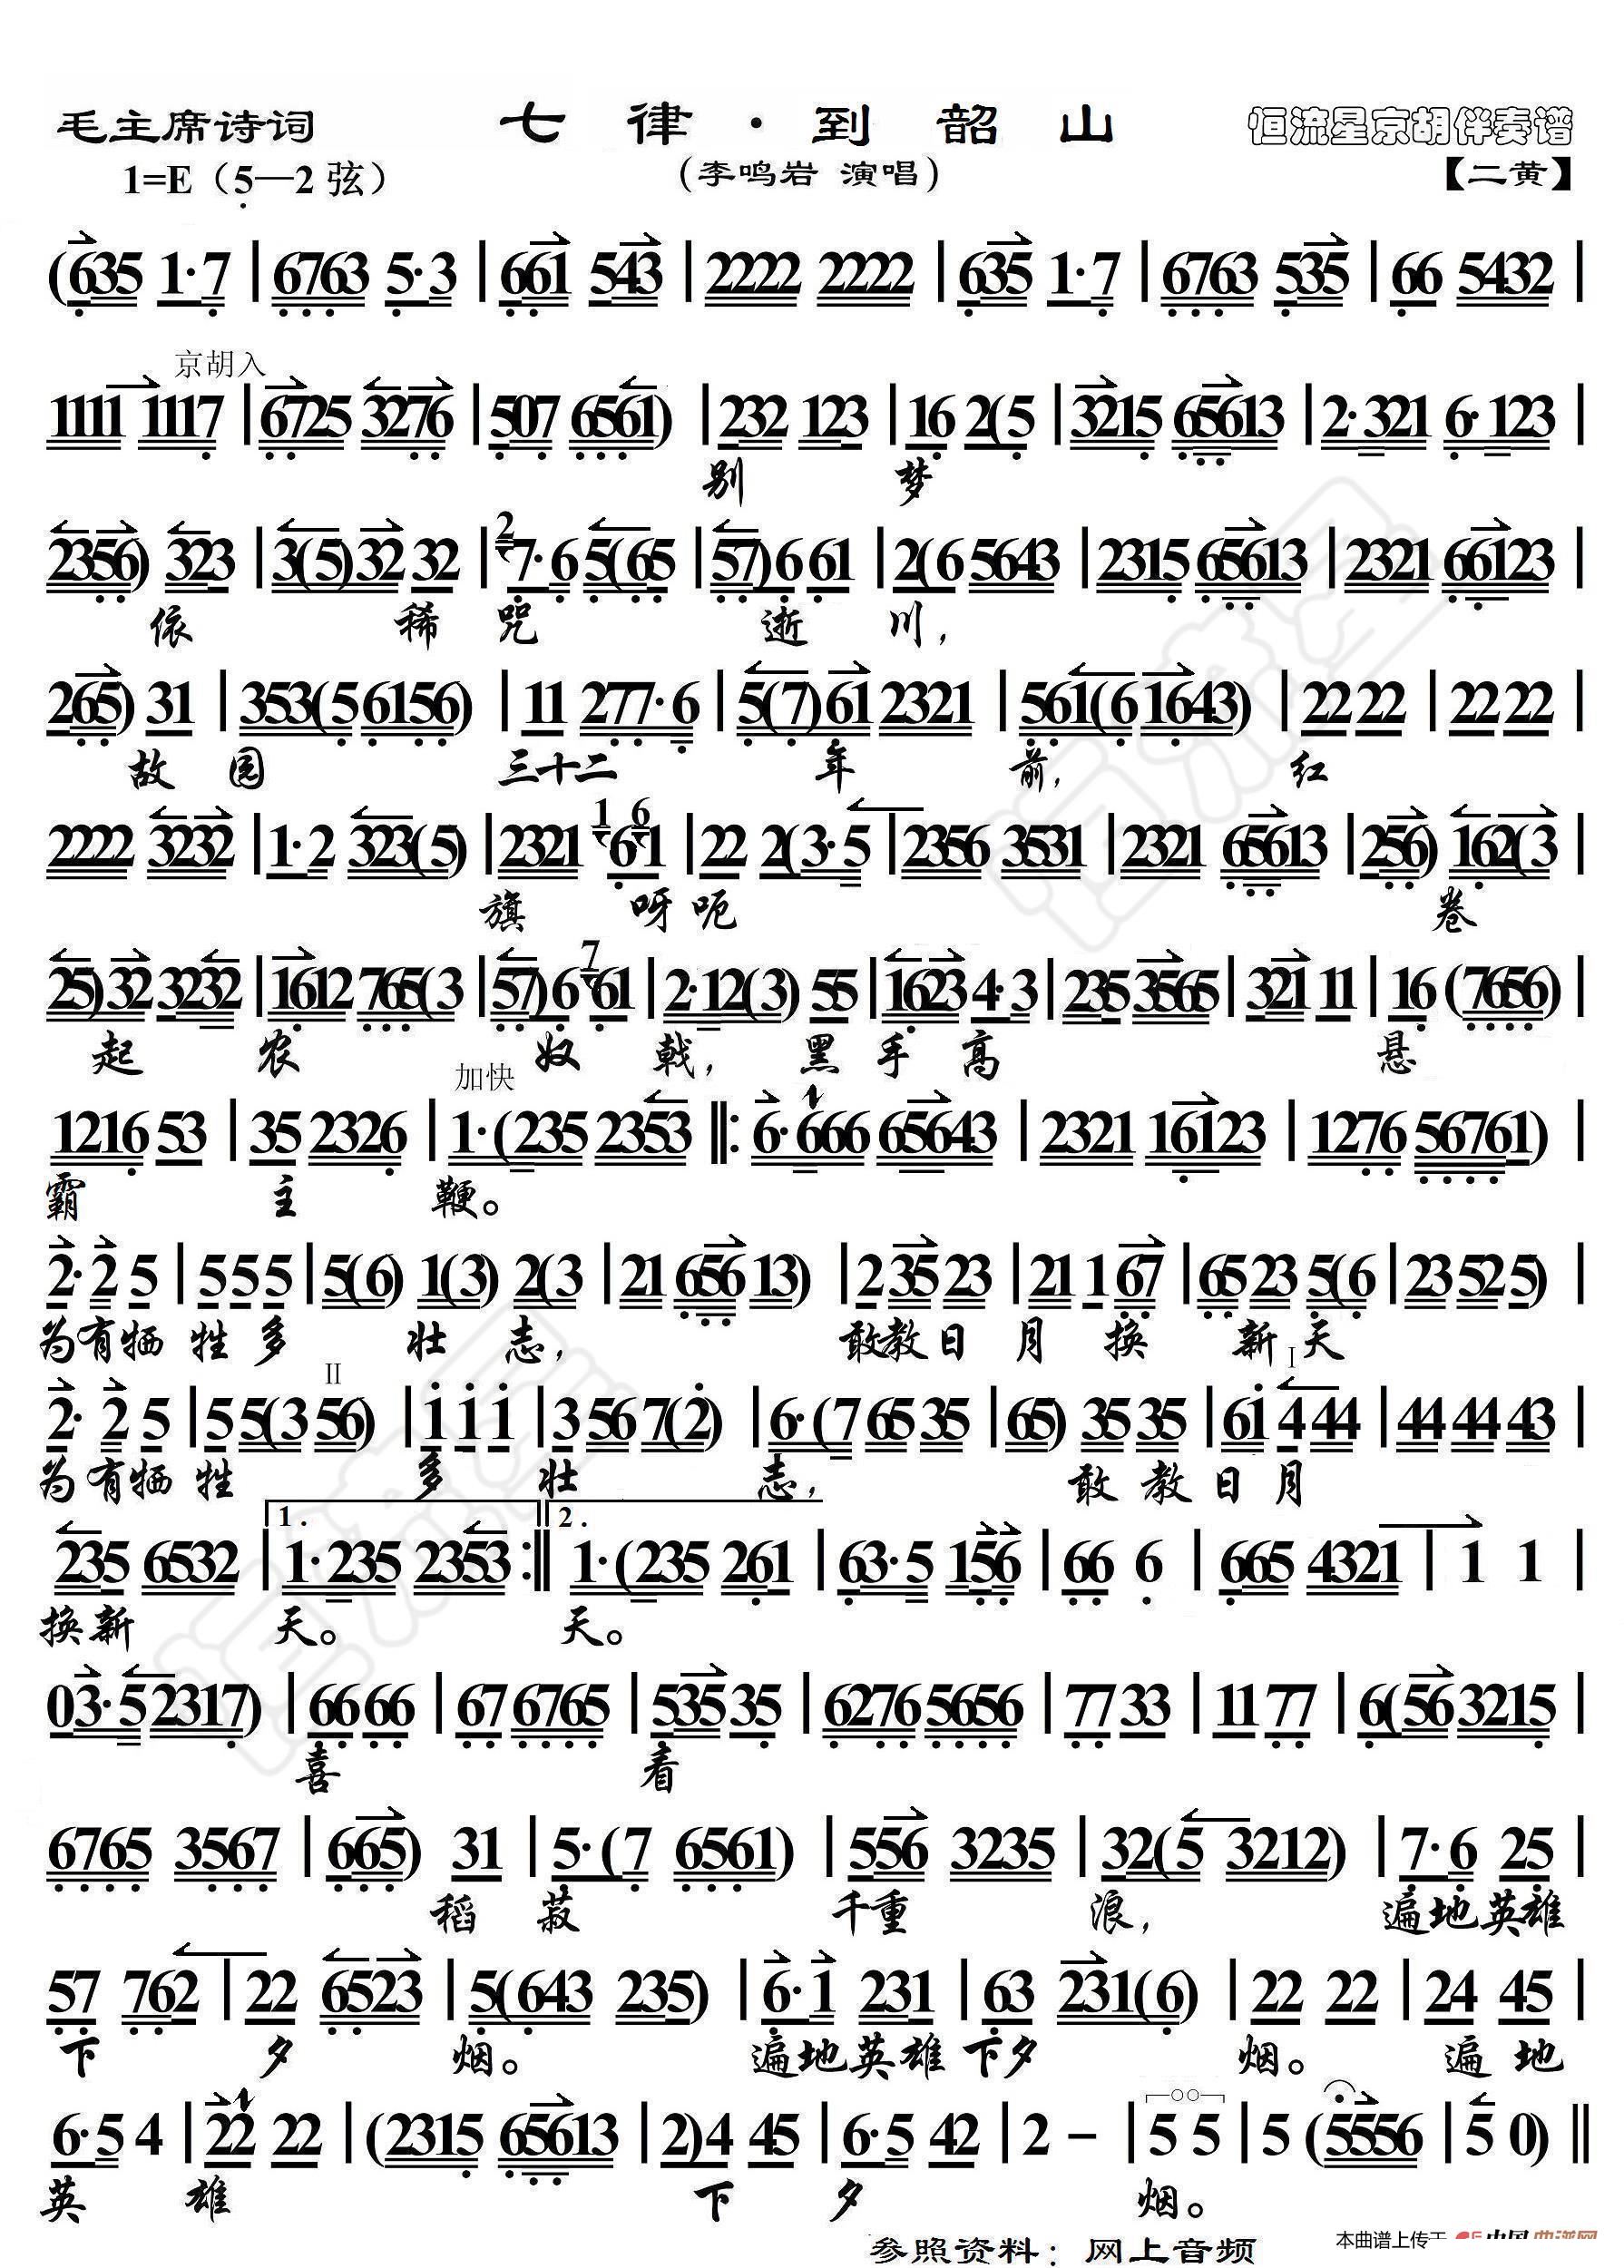 毛主席诗词 七 律 · 到 韶 山 恒流星京胡伴奏谱
1=E（5—2 弦） （李鸣岩 演唱） 【二黄】
(635 1·7 | 6763 5·3 | 661 543 | 2222 2222 | 635 1·7 | 6763 535 | 66 5432 |
京胡入
1111 1117 | 6725 3276 | 507 6561) | 232 123 | 16 2(5 | 3215 65613 | 2·321 6·123 |
别 梦
2356) 323 | 3(5)32 32 | 2 7·6 5(65 | 57)6 61 | 2(6 5643 | 2315 65613 | 2321 66123 |
依 稀 咒 逝 川，
265) 31 | 353(5 6156) | 11 277·6 | 5(7)61 2321 | 561(6 1643) | 22 22 | 22 22 |
故 园 三十二 年 前， 红
2222 3232 | 1·2 323(5) | 2321 1 6 61 | 22 2(3·5 | 2356 3531 | 2321 65613 | 256) 162(3 |
旗 呀 呃 卷
25)32 3232 | 1612 765(3 | 57)6 7 61 | 2·12(3) 55 | 1623 4·3 | 235 3565 | 321 11 | 16 (7656) |
起 农 奴 戟， 黑 手 高 悬
加快
1216 53 | 35 2326 | 1·(235 2353 ‖: 6·666 65643 | 2321 16123 | 1276 56761) |
霸 主 鞭。
2·2 5 | 5 5 5 | 5(6) 1(3) 2(3 | 21 656 13) | 2 35 23 | 21 1 67 | 65 23 5(6 | 23 52 5) |
为有牺 牲 多 壮 志， 敢教日 月 换 新 天
II I
2· 2 5 | 5 5(3 56) | 1 1 1 | 3 56 7(2) | 6·(7 65 35 | 65) 35 35 | 61 4 44 | 44 44 43 |
为有牺 牲 多 壮 志， 敢 教 日 月
1. 2.
235 6532 | 1·235 2353 :‖ 1·(235 261 | 63·5 156 | 66 6 | 665 4321 | 1 1 |
换新 天。 天。
03·5 2317) | 66 66 | 67 6765 | 535 35 | 6276 5656 | 77 33 | 11 77 | 6(56 3215 |
喜 看
6765 3567 | 665) 31 | 5·(7 6561) | 556 3235 | 32(5 3212) | 7·6 25 |
稻 菽 千重 浪， 遍地英雄
57 762 | 22 6523 | 5(643 235) | 6·1 231 | 63 231(6) | 22 22 | 24 45 |
下 夕 烟。 遍地英雄 下夕 烟。 遍 地
6·5 4 | 22 22 | (2315 65613 | 2)4 45 | 6·5 42 | 2 – | 5 5 | 5 (5556 | 5 0) ‖
英 雄 下 夕 烟。
参照资料：网上音频